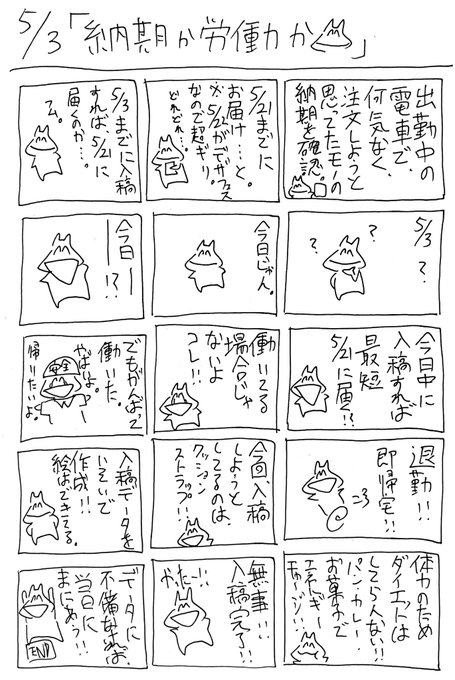 5/3「納期か労働力か」
出勤中の
電車で、
何気なく、
注文しようと
思ってたモノの
納期を確認。
5/21までに
お届け…と。
※5/22がデザフェス
なので超ギリ。
どれどれ…
5/3までに入稿
すれば、5/21に
届くのか…。
フム。
5/3
?
?
?
今日じゃん。
今日ー
!?
今日中に
入稿すれば
最短
5/21に届く!?
働いてる
場合じゃ
ないよ
コレ!!
でもがんばって
働いた。
やばいよ。
安全
帰りたいよ。
退勤!!
即帰宅!!
今回、入稿
しようと
してるのは、
クッション
ストラップ!!
入稿データを
いそいで
作成!!
絵はできてる。
体力のため
ダイエットは
してらんない!!
パン・カレー・
お菓子で
エネルギー
モリッ!!
無事!!
入稿完了!!
かったー!!
データに
不備なければ、
当日に
まにあう!!
END